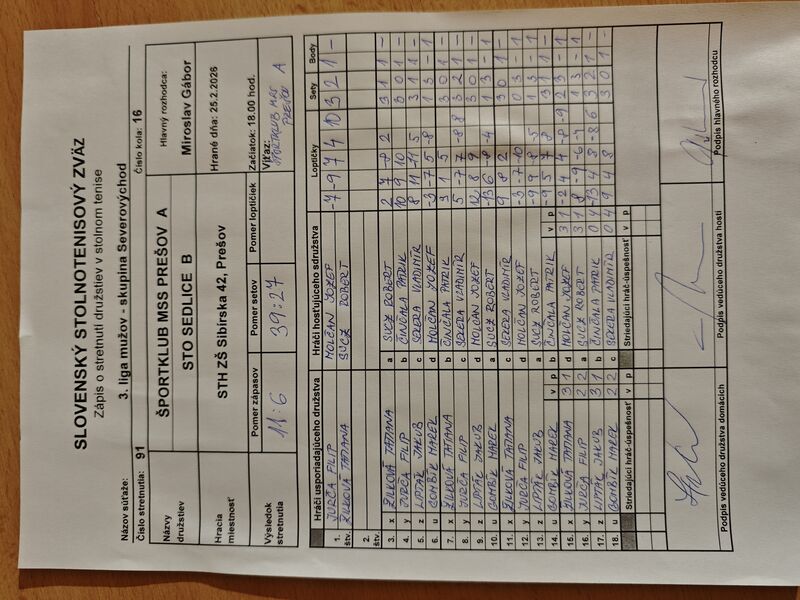 SLOVENSKÝ STOLNOTENISOVÝ ZVÄZ
Zápis o stretnutí družstiev v stolnom tenise
Názov súťaže: 3. liga mužov - skupina Severovýchod
Číslo stretnutia: 91 Číslo kola: 16
Názvy družstiev ŠPORTKLUB MSS PREŠOV A Hlavný rozhodca:
STO SEDLICE B Miroslav Gábor
Hracia miestnosť STH ZŠ Sibírska 42, Prešov Hrané dňa: 25.2.2026
Začiatok: 18.00 hod.
Výsledok stretnutia Pomer zápasov Pomer setov Pomer loptičiek Víťaz:
11:6 39:27 ŠPORTKLUB MSS PREŠOV A
Hráči usporiadajúceho družstva Hráči hosťujúceho sdružstva Loptičky Sety Body
1. štv. JURČA FILIP MOLČAN JOZEF -7 -9 7 4 10 3 2 1 -
ŽILKOVÁ TATIANA SUCZ ROBERT
2. štv.
3. x ŽILKOVÁ TATIANA a SUCZ ROBERT 2 7 -8 2 3 1 1 -
4. y JURČA FILIP b ČINČALA PATRIK 10 9 10 3 0 1 -
5. z LIPTÁK JAKUB c SEKERA VLADIMÍR 8 11 -11 5 3 1 1 -
6. u GOMBÍK MAREK d MOLČAN JOZEF -3 -7 5 -8 1 3 - 1
7. x ŽILKOVÁ TATIANA b ČINČALA PATRIK 3 1 5 3 0 1 -
8. y JURČA FILIP c SEKERA VLADIMÍR 5 -7 7 -8 8 3 2 1 -
9. z LIPTÁK JAKUB d MOLČAN JOZEF 12 8 9 3 0 1 -
10. u GOMBÍK MAREK a SUCZ ROBERT -13 6 -8 -4 1 3 - 1
11. x ŽILKOVÁ TATIANA c SEKERA VLADIMÍR 9 8 2 3 0 1 -
12. y JURČA FILIP d MOLČAN JOZEF -3 -7 -10 0 3 - 1
13. z LIPTÁK JAKUB a SUCZ ROBERT -9 9 -8 -5 1 3 - 1
14. u GOMBÍK MAREK v p b ČINČALA PATRIK v p -9 5 7 8 3 1 1 -
15. x ŽILKOVÁ TATIANA 3 1 d MOLČAN JOZEF 3 1 -2 4 4 -8 -9 2 3 - 1
16. y JURČA FILIP 2 2 a SUCZ ROBERT 3 1 8 -9 -6 -7 1 3 - 1
17. z LIPTÁK JAKUB 3 1 b ČINČALA PATRIK 0 4 -13 4 8 -8 6 3 2 1 -
18. u GOMBÍK MAREK 2 2 c SEKERA VLADIMÍR 0 4 9 4 8 3 0 1 -
Striedajúci hráč-úspešnosť v p Striedajúci hráč-úspešnosť v p
Podpis vedúceho družstva domácich Podpis vedúceho družstva hostí Podpis hlavného rozhodcu